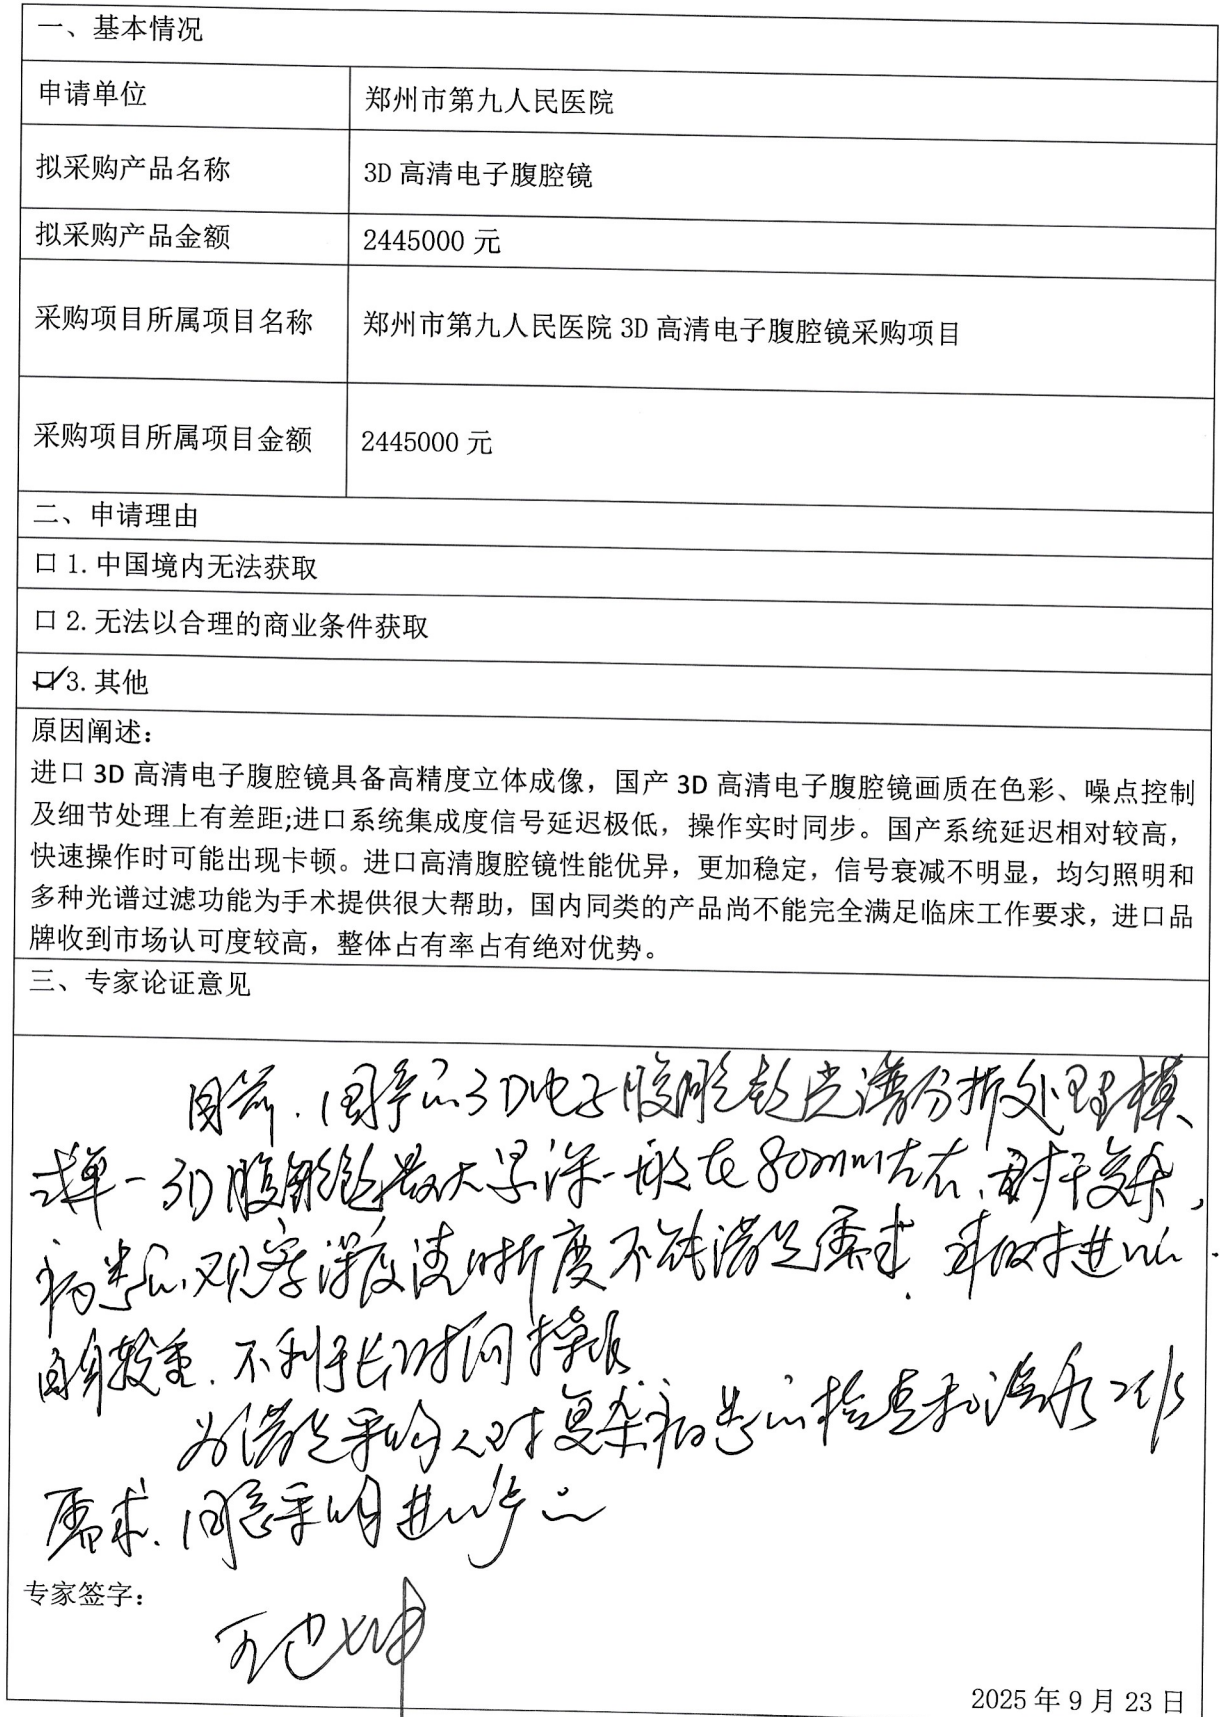 一、基本情况
申请单位
郑州市第九人民医院
拟采购产品名称
3D 高清电子腹腔镜
拟采购产品金额
2445000 元
采购项目所属项目名称
郑州市第九人民医院 3D 高清电子腹腔镜采购项目
采购项目所属项目金额
2445000 元
二、申请理由
口 1. 中国境内无法获取
口 2. 无法以合理的商业条件获取
口✓3. 其他
原因阐述：
进口 3D 高清电子腹腔镜具备高精度立体成像，国产 3D 高清电子腹腔镜画质在色彩、噪点控制
及细节处理上有差距;进口系统集成度信号延迟极低，操作实时同步。国产系统延迟相对较高，
快速操作时可能出现卡顿。进口高清腹腔镜性能优异，更加稳定，信号衰减不明显，均匀照明和
多种光谱过滤功能为手术提供很大帮助，国内同类的产品尚不能完全满足临床工作要求，进口品
牌收到市场认可度较高，整体占有率占有绝对优势。
三、专家论证意见
目前，国产的3D电子腹腔镜光谱分析处理模
式单一 3D腹腔镜最大景深一般在80mm左右，对于复杂
病患的观察深度清晰度不能满足需求，相对进口
自身较重，不利于长时间操作
为满足采购人对复杂病患的检查和治疗工作
需求，同意采购进口产品
专家签字：
2025 年 9 月 23 日